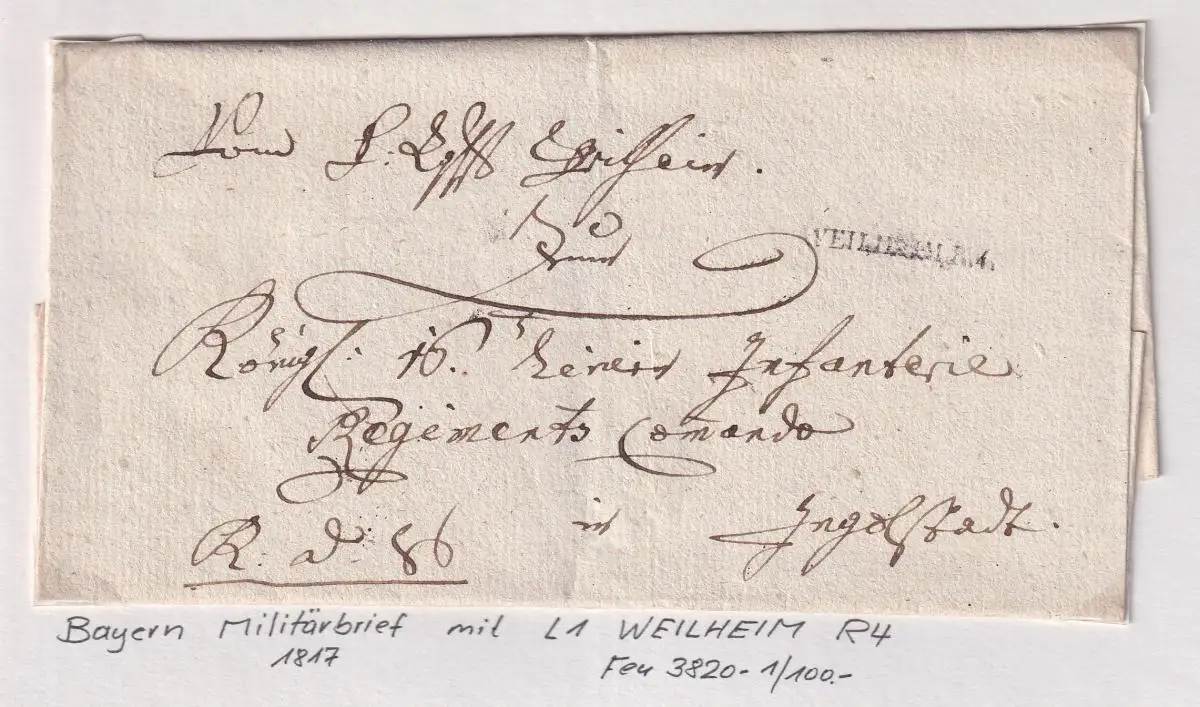 Vom
Zum
WEILHEIM R.4.
Königl: 16. Linien Infanterie
Regiments Comando
in Ingolstadt.
R. d. S
Bayern Militärbrief mit L1 WEILHEIM R4
1817
Feu 3820-1/100.-